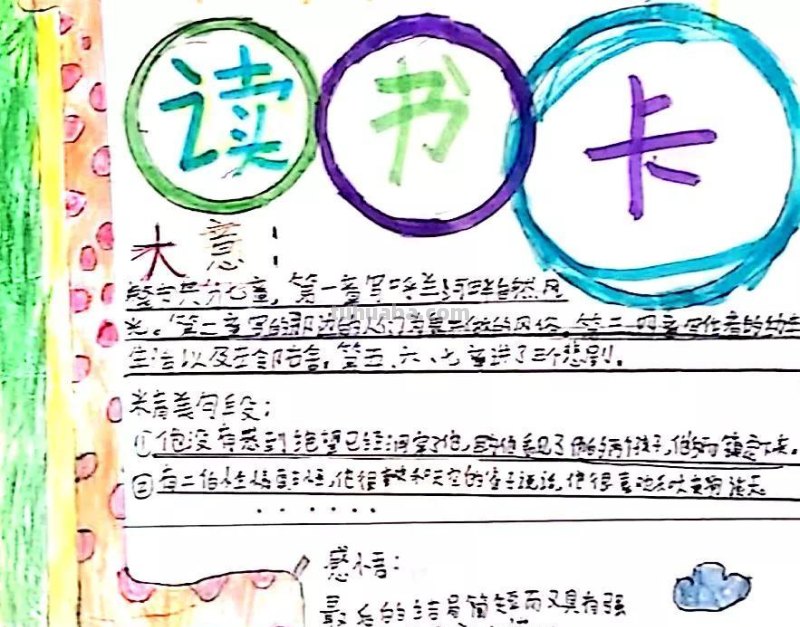 读书卡
大意:
整书共分七章,第一章写呼兰河畔自然风
光。第二章写的那边的人们的风俗。第三、四章写作者的幼年
生活以及左邻右舍。第五、六、七章讲了三个悲剧。
精美句段:
①他没有感到绝望已经洞穿了他,
②有二伯性情,他很喜欢和天空的雀子说话,他很喜欢和大黄狗谈天
......
感悟:
最后的结局简短而又具有强